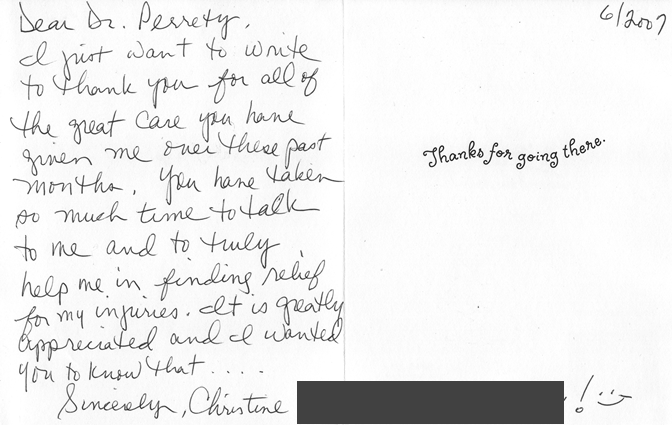 Dear Dr. Perrety,
I just want to write
to thank you for all of
the great care you have
given me over these past
months. You have taken
so much time to talk
to me and to truly
help me in finding relief
for my injuries. It is greatly
appreciated and I wanted
you to know that . . . .
Sincerely, Christine
! :-)
6/2007
Thanks for going there.